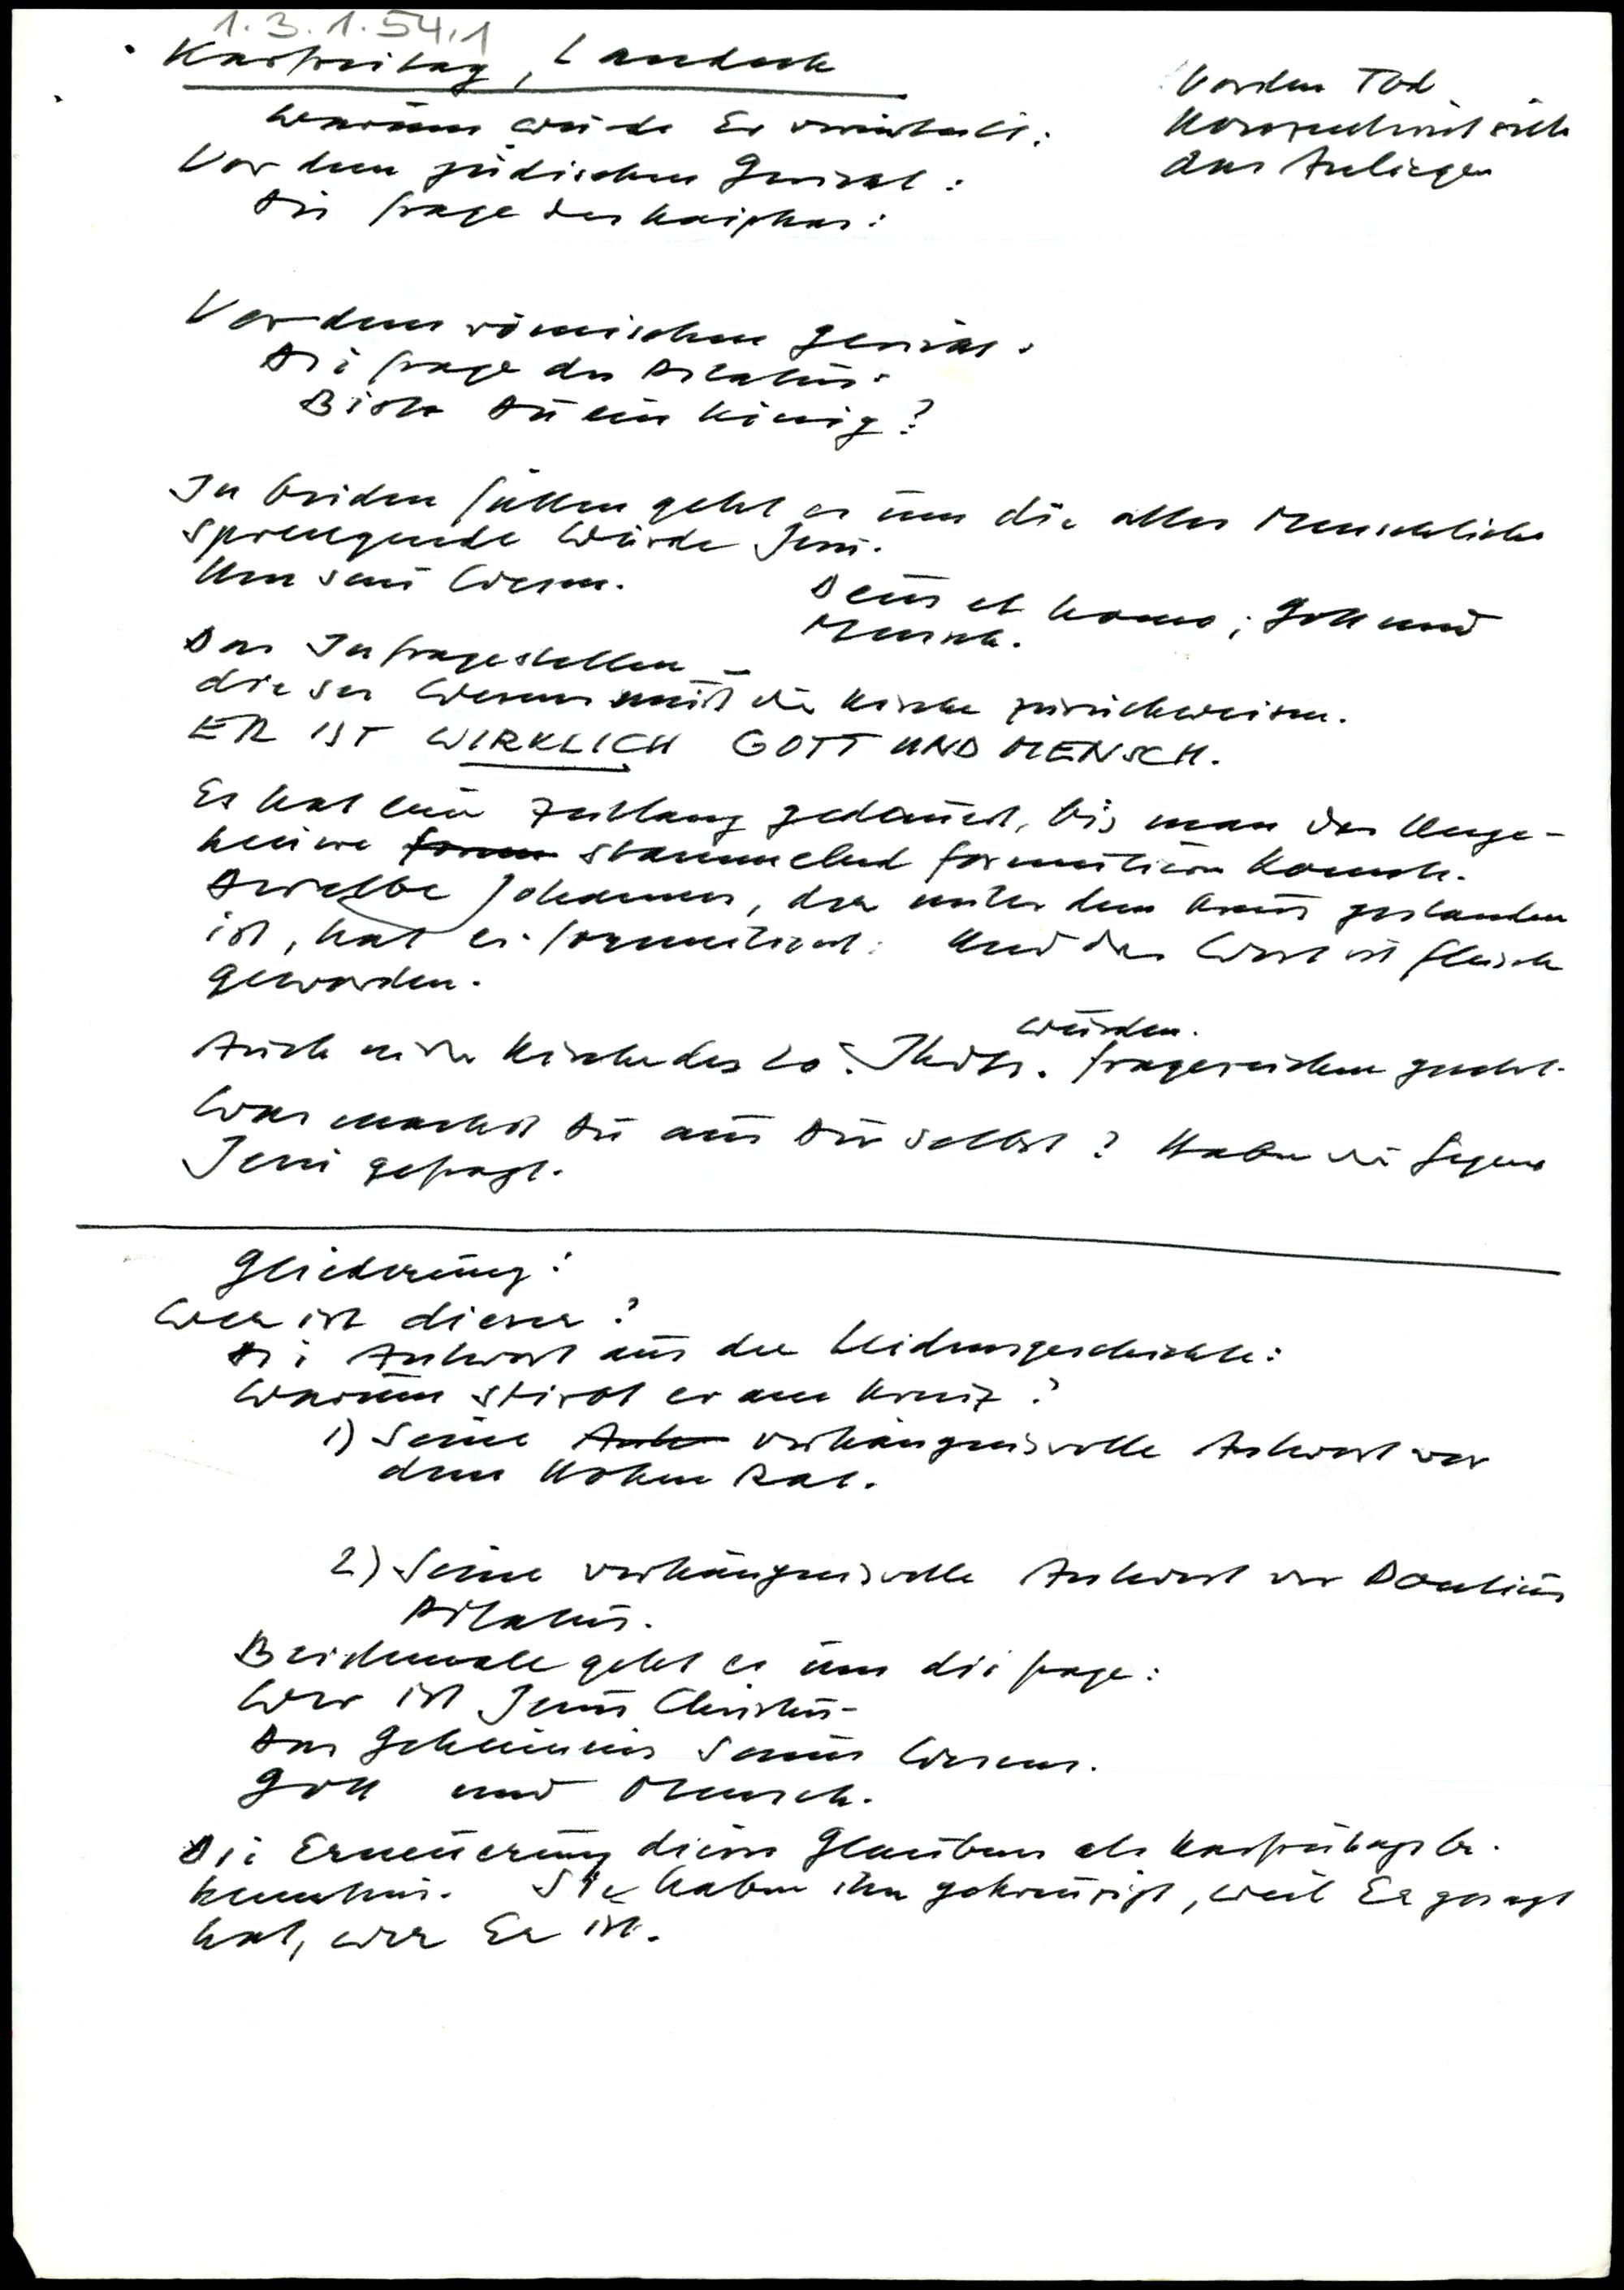 1.3.1.54,1
Karfreitag, Landeck
Vor dem Tod
konzentriert sich
das Anliegen
Warum wurde Er verurteilt:
Vor dem jüdischen Gericht:
Die Frage des Kaiphas:
Vor dem römischen Gericht:
Die Frage des Pilatus:
Bist Du ein König?
In beiden Fällen geht es um die alles Menschliche
sprengende Würde Jesu.
Um sein Wesen.
Deus et homo; Gott und
Mensch.
Das Infragestellen
dieses Wesens muß die Kirche zurückweisen.
ER IST WIRKLICH GOTT UND MENSCH.
Es hat eine Zeitlang gedauert, bis man das Unge-
heure form stammelnd formulieren konnte.
Derselbe Johannes, der unter dem Kreuz gestanden
ist, hat es formuliert: Und das Wort ist Fleisch
geworden.
würden.
Auch in der Kirche des 20. Jhdts. Fragezeichen gesetzt.
Was machst Du aus Dir selbst? Haben die Gegner
Jesu gefragt.
Gliederung:
Wer ist dieser?
Die Antwort aus der Leidensgeschichte:
Warum stirbt er am Kreuz?
1) Seine Antw verhängnisvolle Antwort vor
dem Hohen Rat.
2) Seine verhängnisvolle Antwort vor Pontius
Pilatus.
Beidemale geht es um die Frage:
Wer ist Jesus Christus-
Das Geheimnis seines Wesens.
Gott und Mensch.
Die Erneuerung dieses Glaubens als Karfreitagsbe-
kenntnis. Sie haben ihn gekreuzigt, weil Er gesagt
hat, wer Er ist.